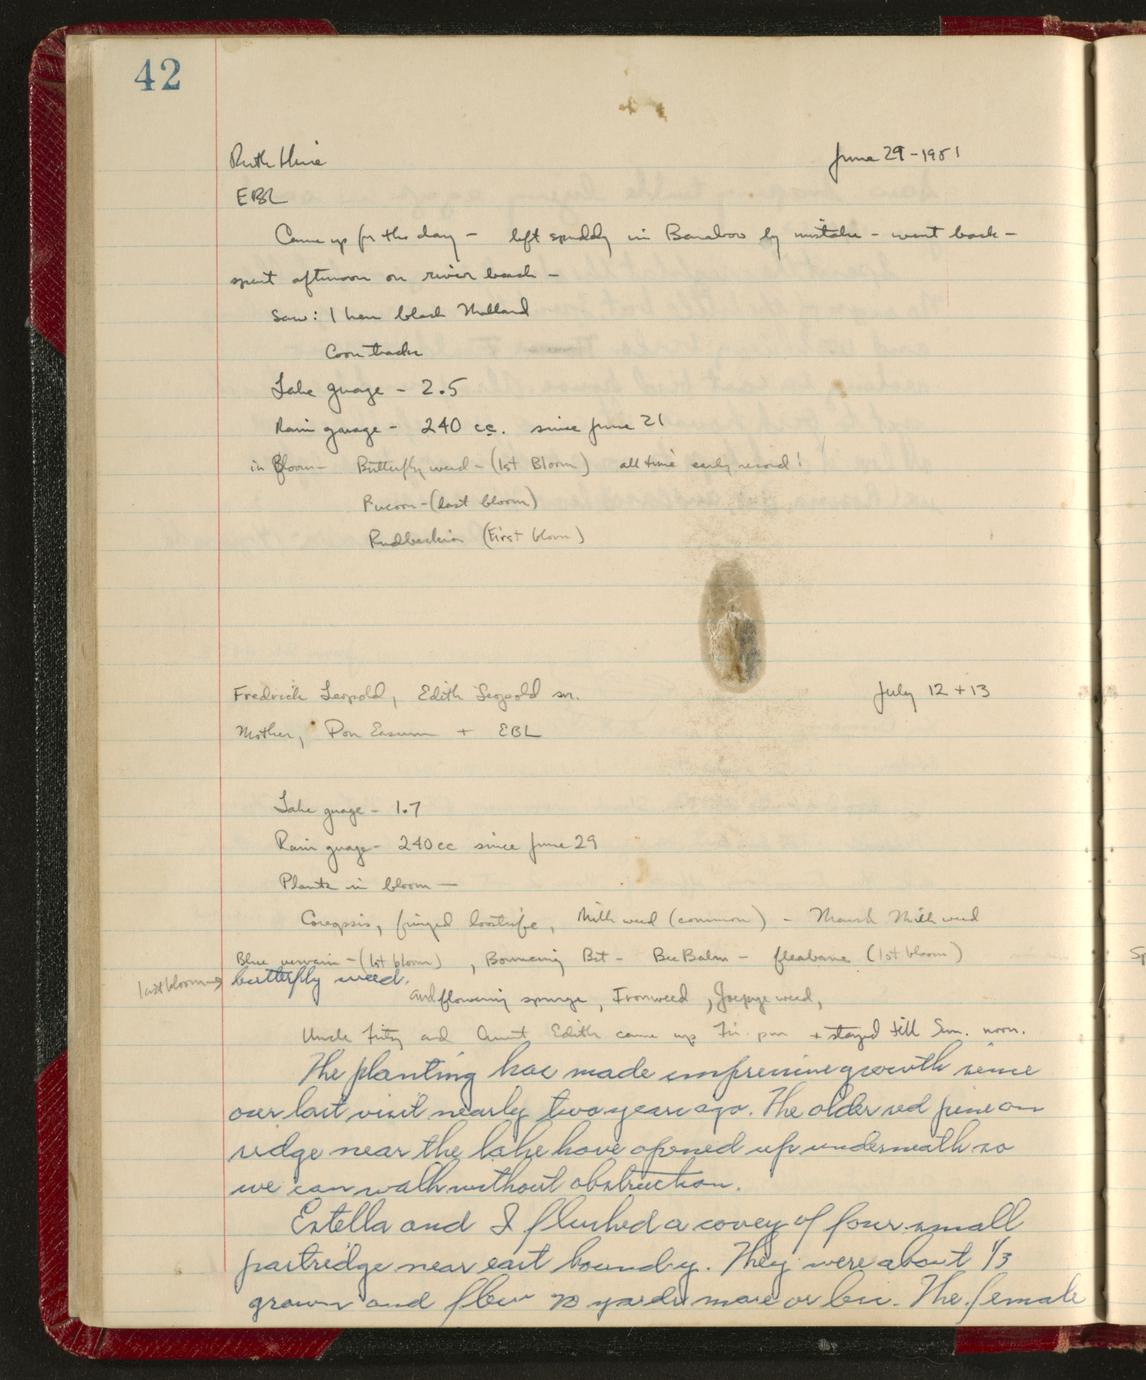 42
Ruth Hine June 29-1951
EBL
Came up for the day - left spuddy in Baraboo by mistake - went back -
spent afternoon on river beach -
Saw: 1 hen black Mallard
Coon tracks
Lake guage - 2.5
Rain guage - 240 cc. since June 21
in Bloom - Butterfly weed - (1st Bloom) all time early record!
Pucoon - (last bloom)
Rudbeckia (First bloom)
Fredrick Leopold, Edith Leopold sr. July 12 + 13
Mother, Don Easum + EBL
Lake guage - 1.7
Rain guage - 240cc since June 29
Plants in bloom -
Coreopsis, fringed loostrife, Milk weed (common) - Marsh Milk weed
Blue vervain - (1st bloom), Bouncing Bet - Bee Balm - fleabane (1st bloom)
last bloom → butterfly weed.
and flowering spurge, Ironweed, Joepyeweed,
Uncle Fritz and Aunt Edith came up Fri. pm + stayed till Sun. noon.
The planting has made impressive growth since
our last visit nearly two years ago. The older red pine on
ridge near the lake have opened up underneath so
we can walk without obstruction.
Estella and I flushed a covey of four small
partridge near east boundry. They were about 1/3
grown and flew yards more or less. The female
Sp